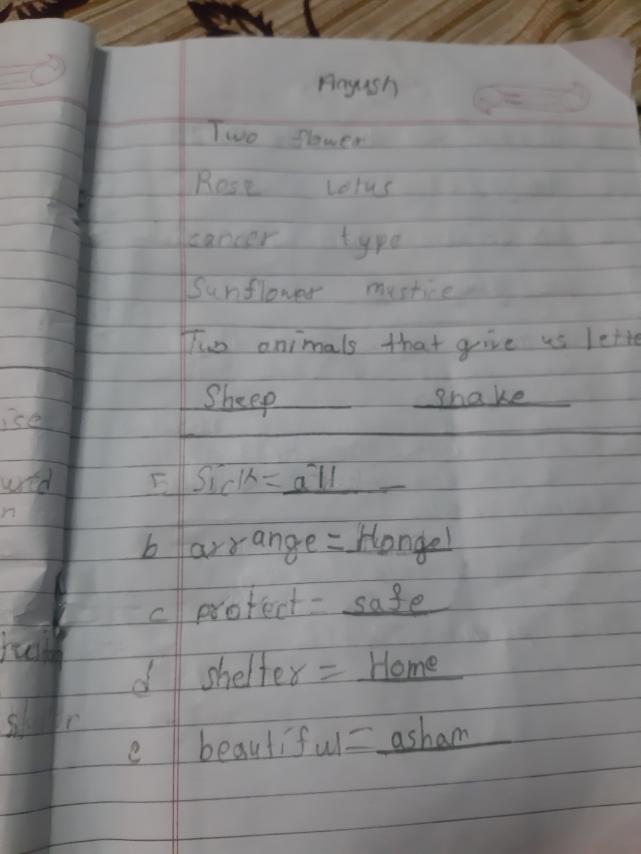 Aayush
Two flower
Rose lotus
cancer type
Sunflower mustice
Two animals that give us lette
Sheep snake
Sick = all
b arrange = Hangel
c protect = safe
d shelter = Home
e beautiful = asham
ise
n